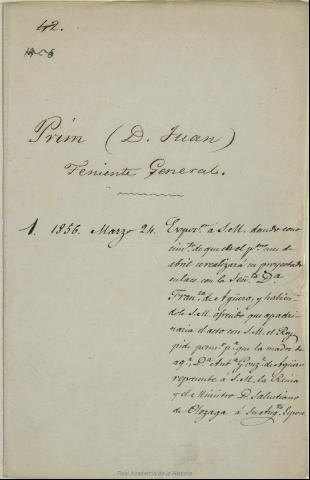 42.
Prim (D. Juan)
Teniente General.
1. 1856. Marzo 24. Expon.ⁿ á S.M. dando cono
cim.to de que el pmo. mes de
abril se realizará su proyectado
enlace con la Señ.ta D.a
Fran.ca de Agüero, y habien-
dole S.M. ofrecido que apadri-
naria el acto con S.M. el Rey
pide perm.o p.a que la madre de
aq.a D.a Ant.a Gonz.z de Agüero
represente á S.M. la Reina
y el Ministro D. Salustiano
de Olozaga á su Aug.to Esposo.
Real Academia de la Historia